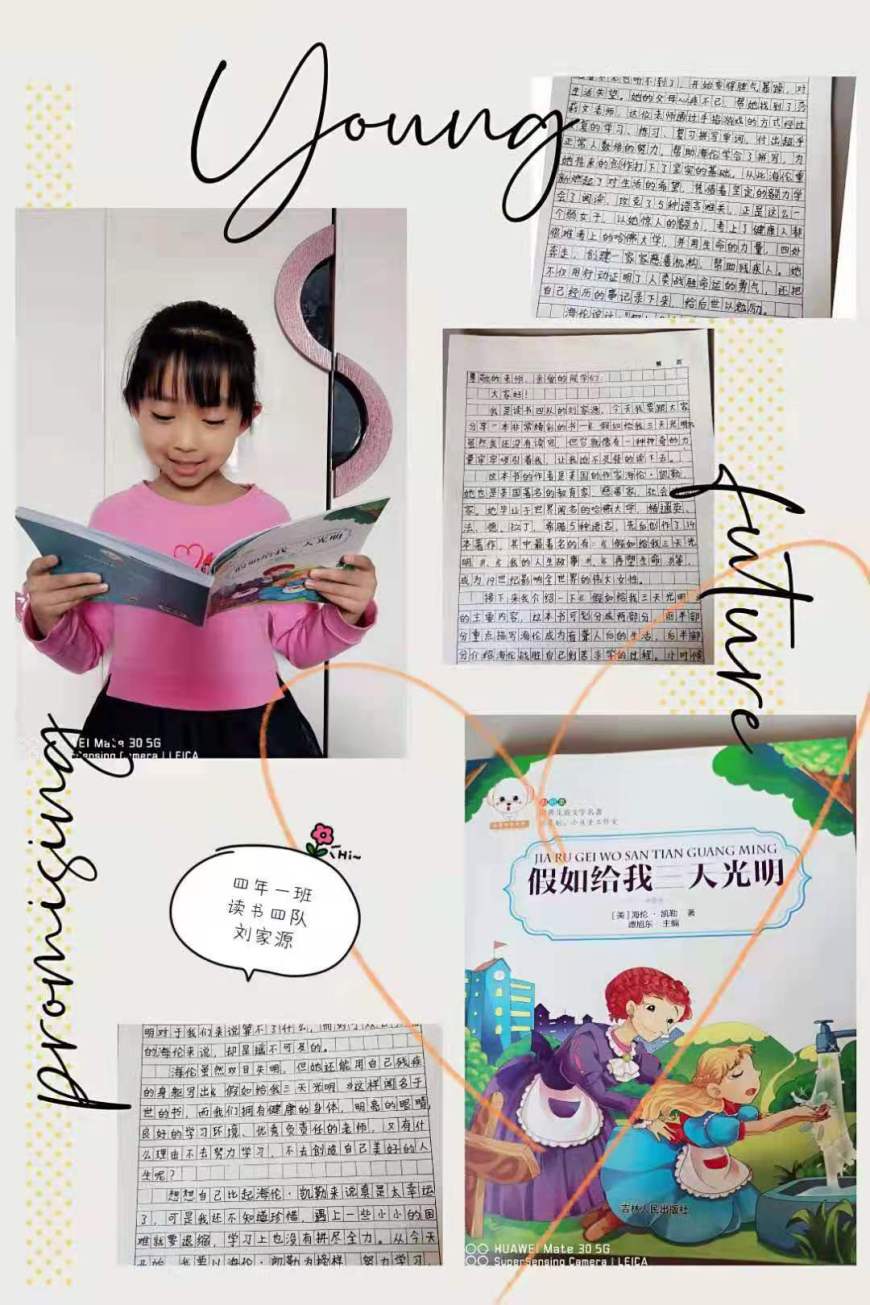 Young
正常人数倍的努力，帮助海伦学会了拼写，为
她将来的创作打下了坚实的基础。从此海伦重
新燃起了对生活的希望，凭借着坚定的毅力学
会了阅读，攻克了5种语言难关。正是这么一
个弱女子，以她惊人的毅力，考上了健康人都
很难考上的哈佛大学，并用生命的力量，四处
奔走，创建一家家慈善机构，帮助残疾人。她
不仅用行动证明了人类战胜命运的勇气，还把
自己经历的事记录下来，给后世以勉励。
尊敬的老师，亲爱的同学们：
大家好！
我是读书四队的刘家源，今天我要跟大家
分享一本非常精彩的书《假如给我三天光明》
虽然我还没有读完，但它就像有一种神奇的力
量牢牢吸引着我，让我迫不及待的读下去。
这本书的作者是美国的作家海伦·凯勒，
她也是美国著名的教育家、慈善家、社会
家，她毕业于世界闻名的哈佛大学，精通英、
法、德、拉丁、希腊5种语言，先后创作了14
本著作，其中最著名的有：《假如给我三天光
明》、《我的人生故事》、《再塑生命》等，
成为19世纪影响全世界的伟大女性。
接下来我介绍一下《假如给我三天光明》
的主要内容，这本书可划分成两部分，前半部
分重点描写海伦成为盲聋人后的生活，后半部
分介绍海伦战胜自己刻苦求学的过程。小时候
future
promising
假如给我三天光明
HUAWEI Mate 30 5G
SuperSensing Camera | LEICA
Hi~
四年一班
读书四队
刘家源
JIA RU GEI WO SAN TIAN GUANG MING
假如给我三天光明
[美]海伦·凯勒 著
谭旭东 主编
吉林人民出版社
HUAWEI Mate 30 5G
SuperSensing Camera | LEICA
明对于我们来说算不了什么，而对于双目失明
的海伦来说，却是遥不可及的。
海伦虽然双目失明，但她还能用自己残疾
的身躯写出《假如给我三天光明》这样闻名于
世的书，而我们拥有健康的身体、明亮的眼睛、
良好的学习环境、优秀负责任的老师，又有什
么理由不去努力学习，不去创造自己美好的人
生呢？
想想自己比起海伦·凯勒来说真是太幸运
了，可是我还不知道珍惜，遇上一些小小的困
难就要退缩，学习上也没有拼尽全力。从今天
开始，我要以海伦·凯勒为榜样，努力学习，